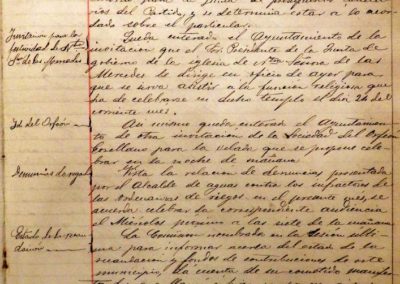 vos del Partido, y se determina estar a lo acor-
dado sobre el particular.
Invitacion para la
festividad de Ntra
Sra de las Mercedes
Queda enterado el Ayuntamiento de la
invitacion que el Sr. Presidente de la Junta de
gobierno de la iglesia de Ntra Señora de las
Mercedes le dirige en oficio de ayer para
que se sirva asistir a la funcion religiosa que
ha de celebrarse en dicho templo el dia 24 del
corriente mes.
Id. del Orfeón
Asi mismo queda enterado el Ayuntamien-
to de otra invitacion de la Sociedad del Orfeon
para la velada que se propone cele-
brar en la noche de mañana.
Denuncias de riegos
Vista la relacion de denuncias presentada
por el Alcalde de aguas contra los infractores de
las ordenanzas de riegos en el presente mes, se
acuerda celebrar la correspondiente audiencia
el Miércoles proximo a las siete de la mañana
Estado de la recau-
dación
La Comision nombrada en la sesión ulti-
ma para informar acerca del estado de la
recaudacion y fondos de contribuciones de este
municipio, da cuenta de su cometido manifes-